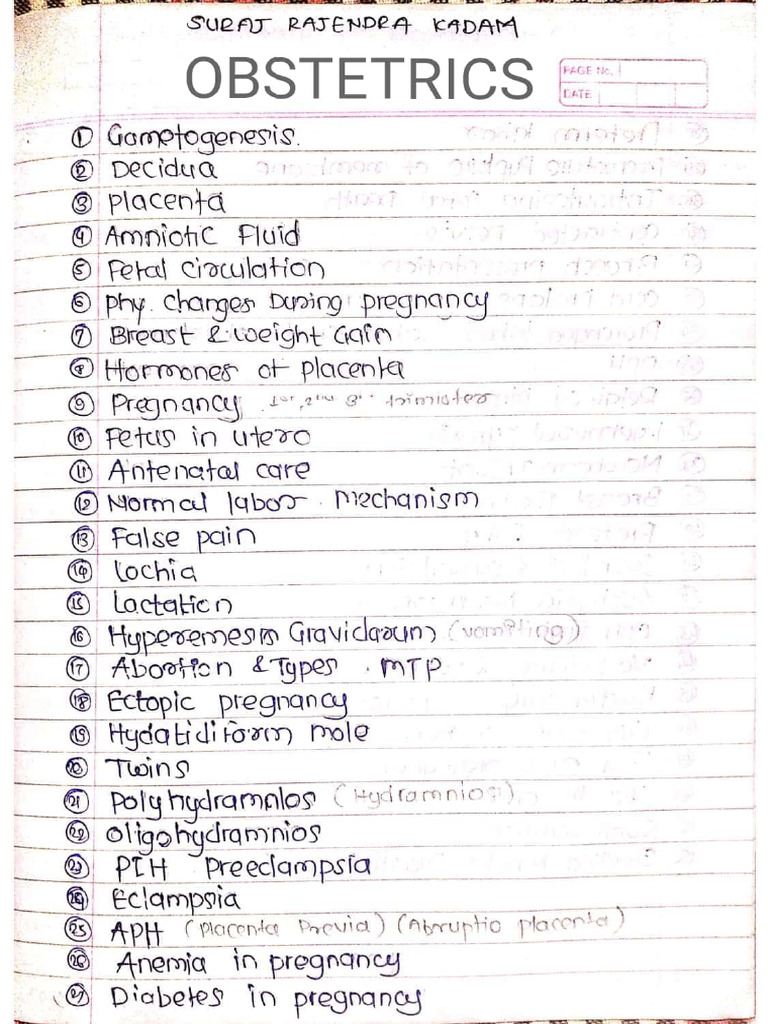 SURAJ RAJENDRA KADAM
OBSTETRICS
PAGE No.
DATE
① Gametogenesis.
② Decidua
③ Placenta
④ Amniotic Fluid
⑤ Fetal circulation
⑥ Phy. Changes During pregnancy
⑦ Breast & Weight Gain
⑧ Hormones of placenta
⑨ Pregnancy 1st, 2nd, 3 trimister
⑩ Fetus in utero
⑪ Antenatal care
⑫ Normal labor. Mechanism
⑬ False pain
⑭ Lochia
⑮ Lactation
⑯ Hyperemesis Gravidarum (vomiting)
⑰ Abortion & Types. MTP
⑱ Ectopic pregnancy
⑲ Hydatidiform mole
⑳ Twins
㉑ Polyhydramnios (Hydramnios)
㉒ Oligohydramnios
㉓ PIH Preeclampsia
㉔ Eclampsia
㉕ APH (Placenta Previa) (Abruptio placenta)
㉖ Anemia in pregnancy
㉗ Diabetes in pregnancy